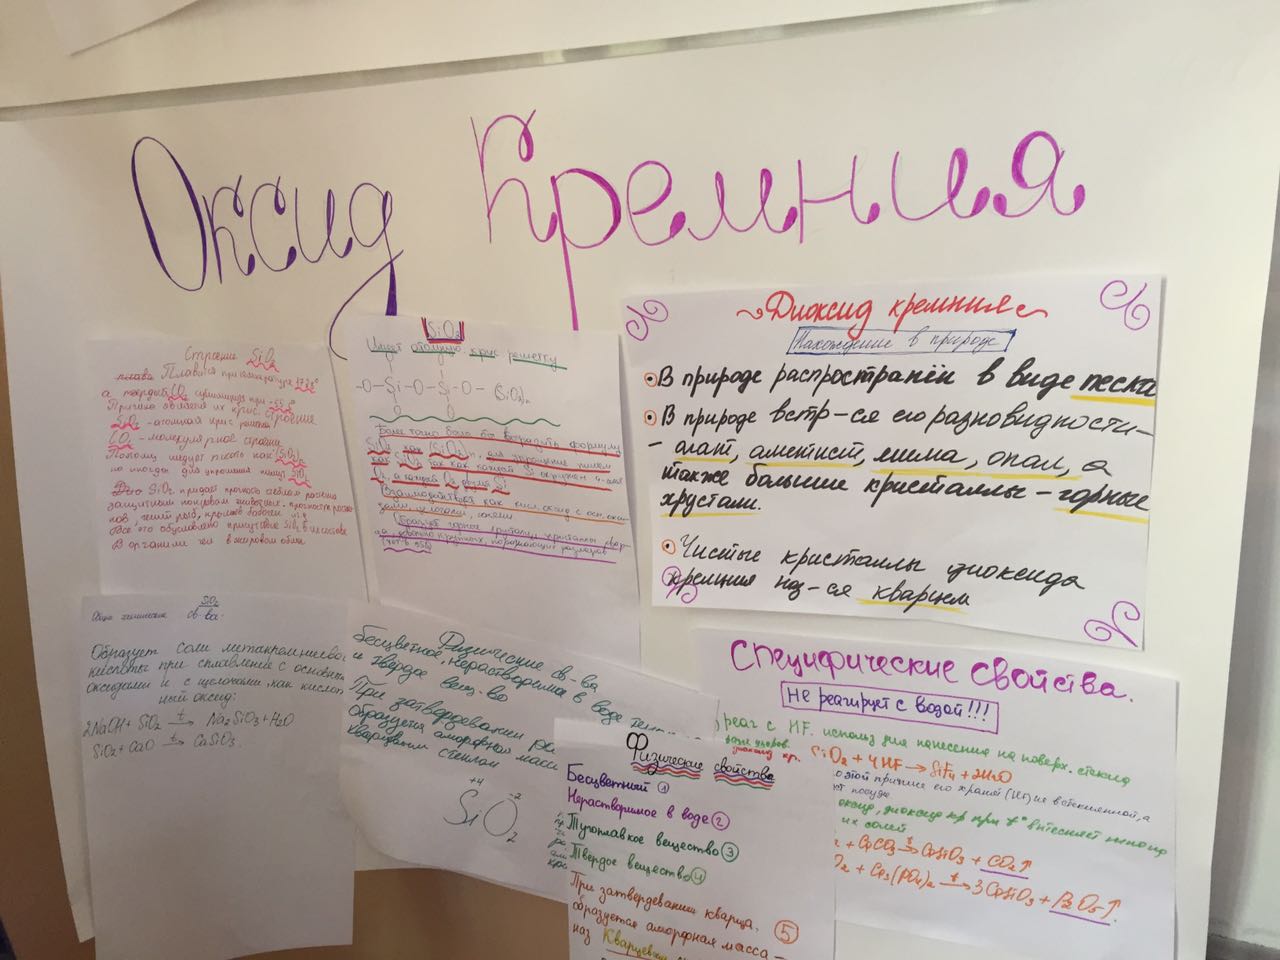 Оксид Кремния
Строение SiO2
Плавится при температуре 1728°
а твердый CO2 сублимируется при -55°
Причина является их крис. строение
SiO2 - атомная крис решетка
CO2 - молекулярное строение
Поэтому следует писать как (SiO2)n
но иногда для упрощения пишут SiO2
SiO2 придает прочность стеблям растений
защитным покровам животных
Все это обусловлено присутствие SiO2 в их составе
SiO2
Имеет атомную крис решетку
-O-Si-O-Si-O- (SiO2)n
O O
Более точно было бы выразить формулу
SiO2 как (SiO2)n, для упрощения пишем
как SiO2 так как каждый Si окружен 4-мя
O, а каждый O двумя Si
Взаимодействует как кис. оксид с осн. окси-
дами и
Диоксид кремния
Нахождение в природе
В природе распространён в виде песка
В природе встр-ся его разновидности-
- агат, аметист, яшма, опал, а
также большие кристаллы - горные
хрустали.
Чистые кристаллы диоксида
кремния наз-ся кварцем
SiO2
Общие химические св-ва:
Образует соли метакремниевой
кислоты при сплавление с основными
оксидами и с щелочами, как кислот
ный оксид:
2NaOH + SiO2 t→ Na2SiO3 + H2O
SiO2 + CaO t→ CaSiO3.
Физические св-ва
бесцветное, нерастворима в воде
и твёрдое вещ-во
При затвердевании
образуется аморфная масса
кварцевым стеклом
+4 -2
SiO2
Физические свойства
Бесцветный 1
Нерастворимое в воде 2
Тугоплавкое вещество 3
Твёрдое вещество 4
При затвердевании кварца
образуется аморфная масса - 5
наз Кварцевым
Специфические свойства.
Не реагирует с водой!!!
реаг с HF. использ для нанесения на поверх. стекла
SiO2 + 4HF → SiF4 + 2H2O
этой причине его хранят (HF) не в стеклянной, а
посуде
оксид, диоксид кр при t° вытесняет
их солей
+ CaCO3 t→ CaSiO3 + CO2↑
+ Ca3(PO4)2 t→ 3CaSiO3 + P2O5↑